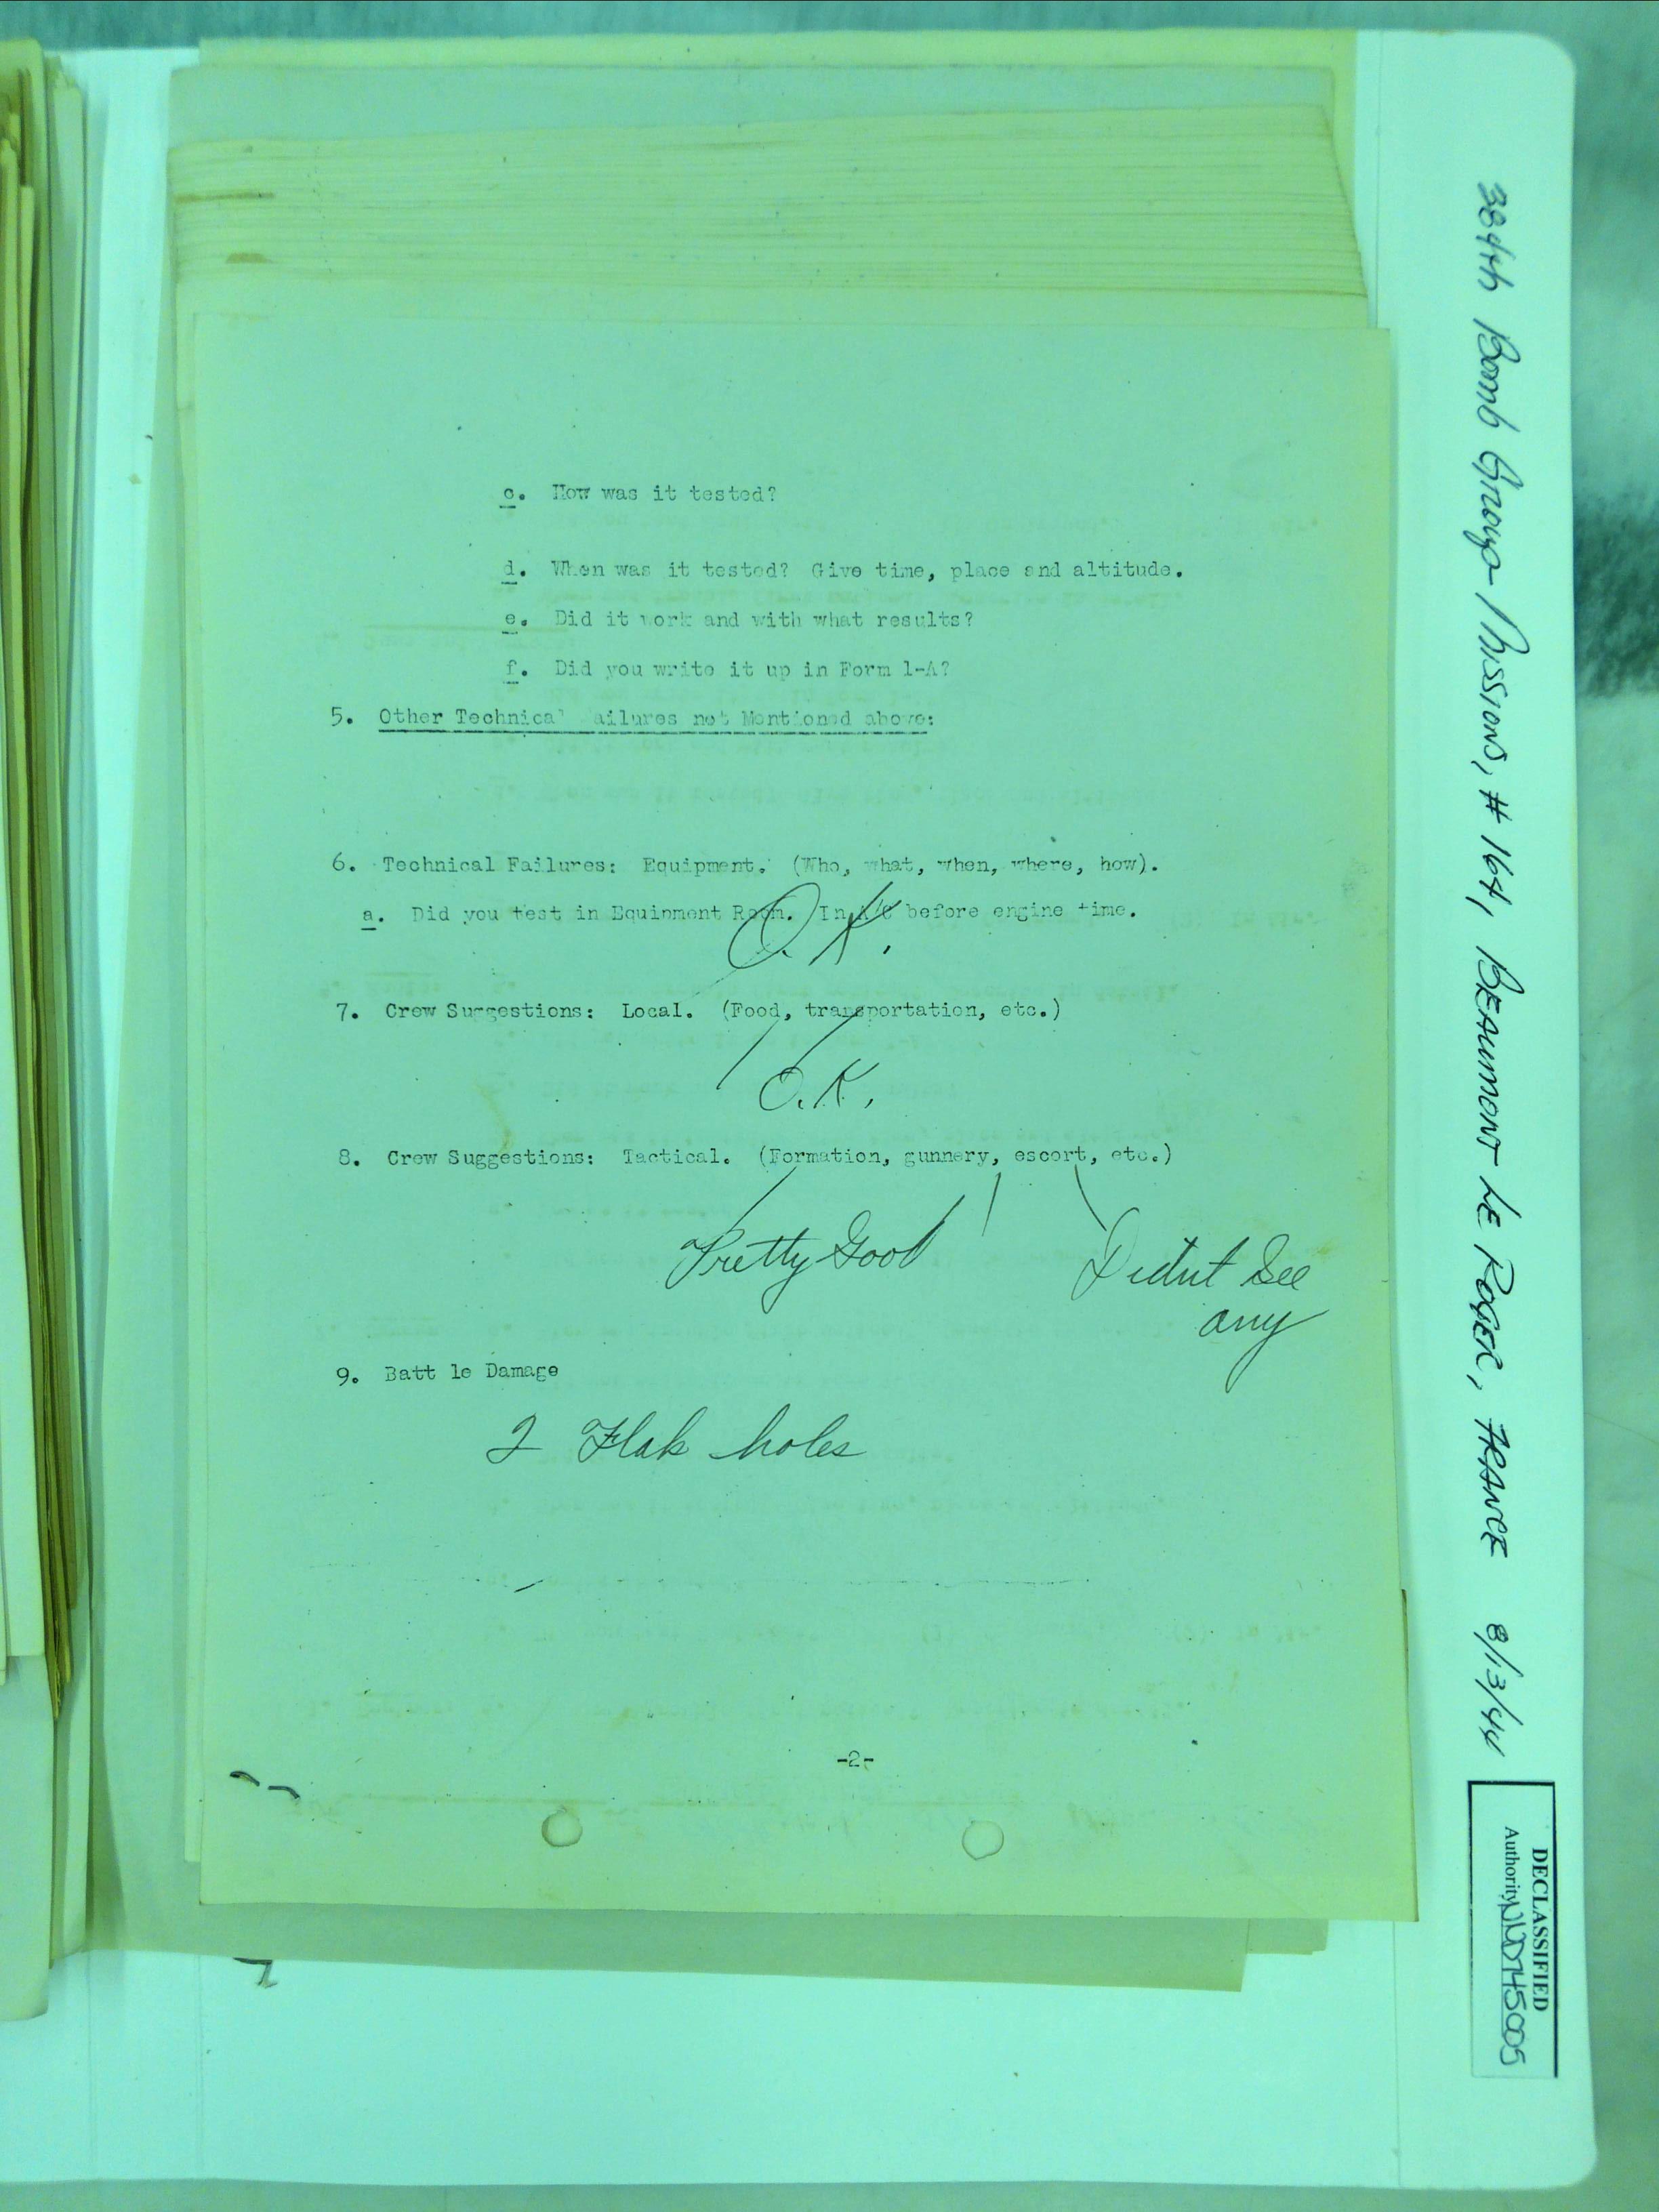 c. How was it tested?
d. When was it tested? Give time, place and altitude.
e. Did it work and with what results?
f. Did you write it up in Form 1-A?
5. Other Technical ailures not Mentioned above:
6. Technical Failures: Equipment. (Who, what, when, where, how).
a. Did you test in Equipment Room. In A/C before engine time.
O.K.
7. Crew Suggestions: Local. (Food, transportation, etc.)
O.K.
8. Crew Suggestions: Tactical. (Formation, gunnery, escort, etc.)
Pretty Good
Didnt See
any
9. Batt le Damage
2 Flak holes
-2-
384th Bomb Group Missions, # 164, BEAUMONT LE ROGER, FRANCE 8/13/44
DECLASSIFIED
Authority NND745005